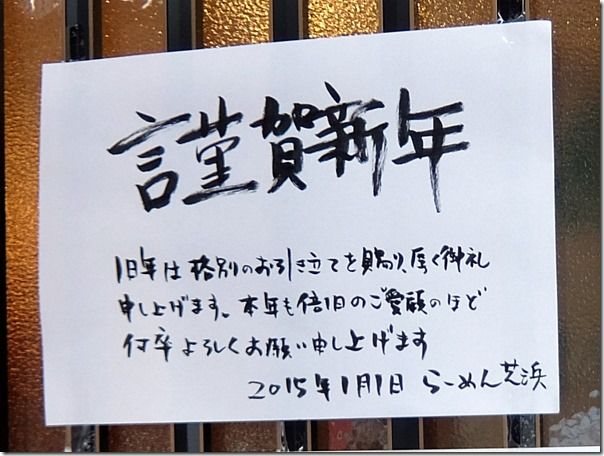 謹賀新年
旧年は格別のお引き立てを賜り、厚く御礼
申し上げます。本年も倍旧のご愛顧のほど
何卒よろしくお願い申し上げます
2015年1月1日 らーめん芝浜